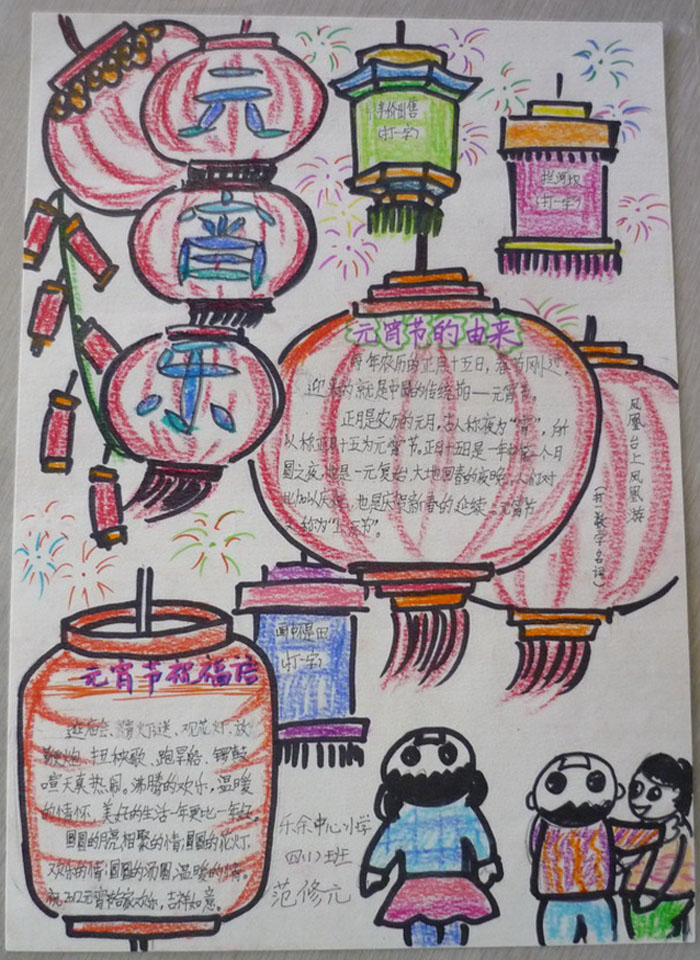 元
宵
乐
半价出售
(打一字)
(打一字)
元宵节的由来
每年农历的正月十五日,春节刚过,
迎来的就是中国的传统节——元宵节。
正月是农历的元月,古人称夜为“宵”,所
以称正月十五为元宵节。正月十五日是一年中第一个月
圆之夜,也是一元复始,大地回春的夜晚,人们对
此加以庆祝,也是庆贺新春的延续。元宵节
称为“上元节”。
凤凰台上凤凰游
(打一数学名词)
(打一字)
元宵节祝福语
逛庙会、猜灯谜、观花灯、放
鞭炮、扭秧歌、跑旱船、锣鼓
喧天真热闹。沸腾的欢乐,温暖
的情怀,美好的生活一年更比一年好。
圆圆的月亮相聚的情;圆圆的花灯,
欢乐的情;圆圆的汤圆,温暖的情。
祝2012元宵阖家欢乐,吉祥如意。
乐余中心小学
四(1)班
范修元